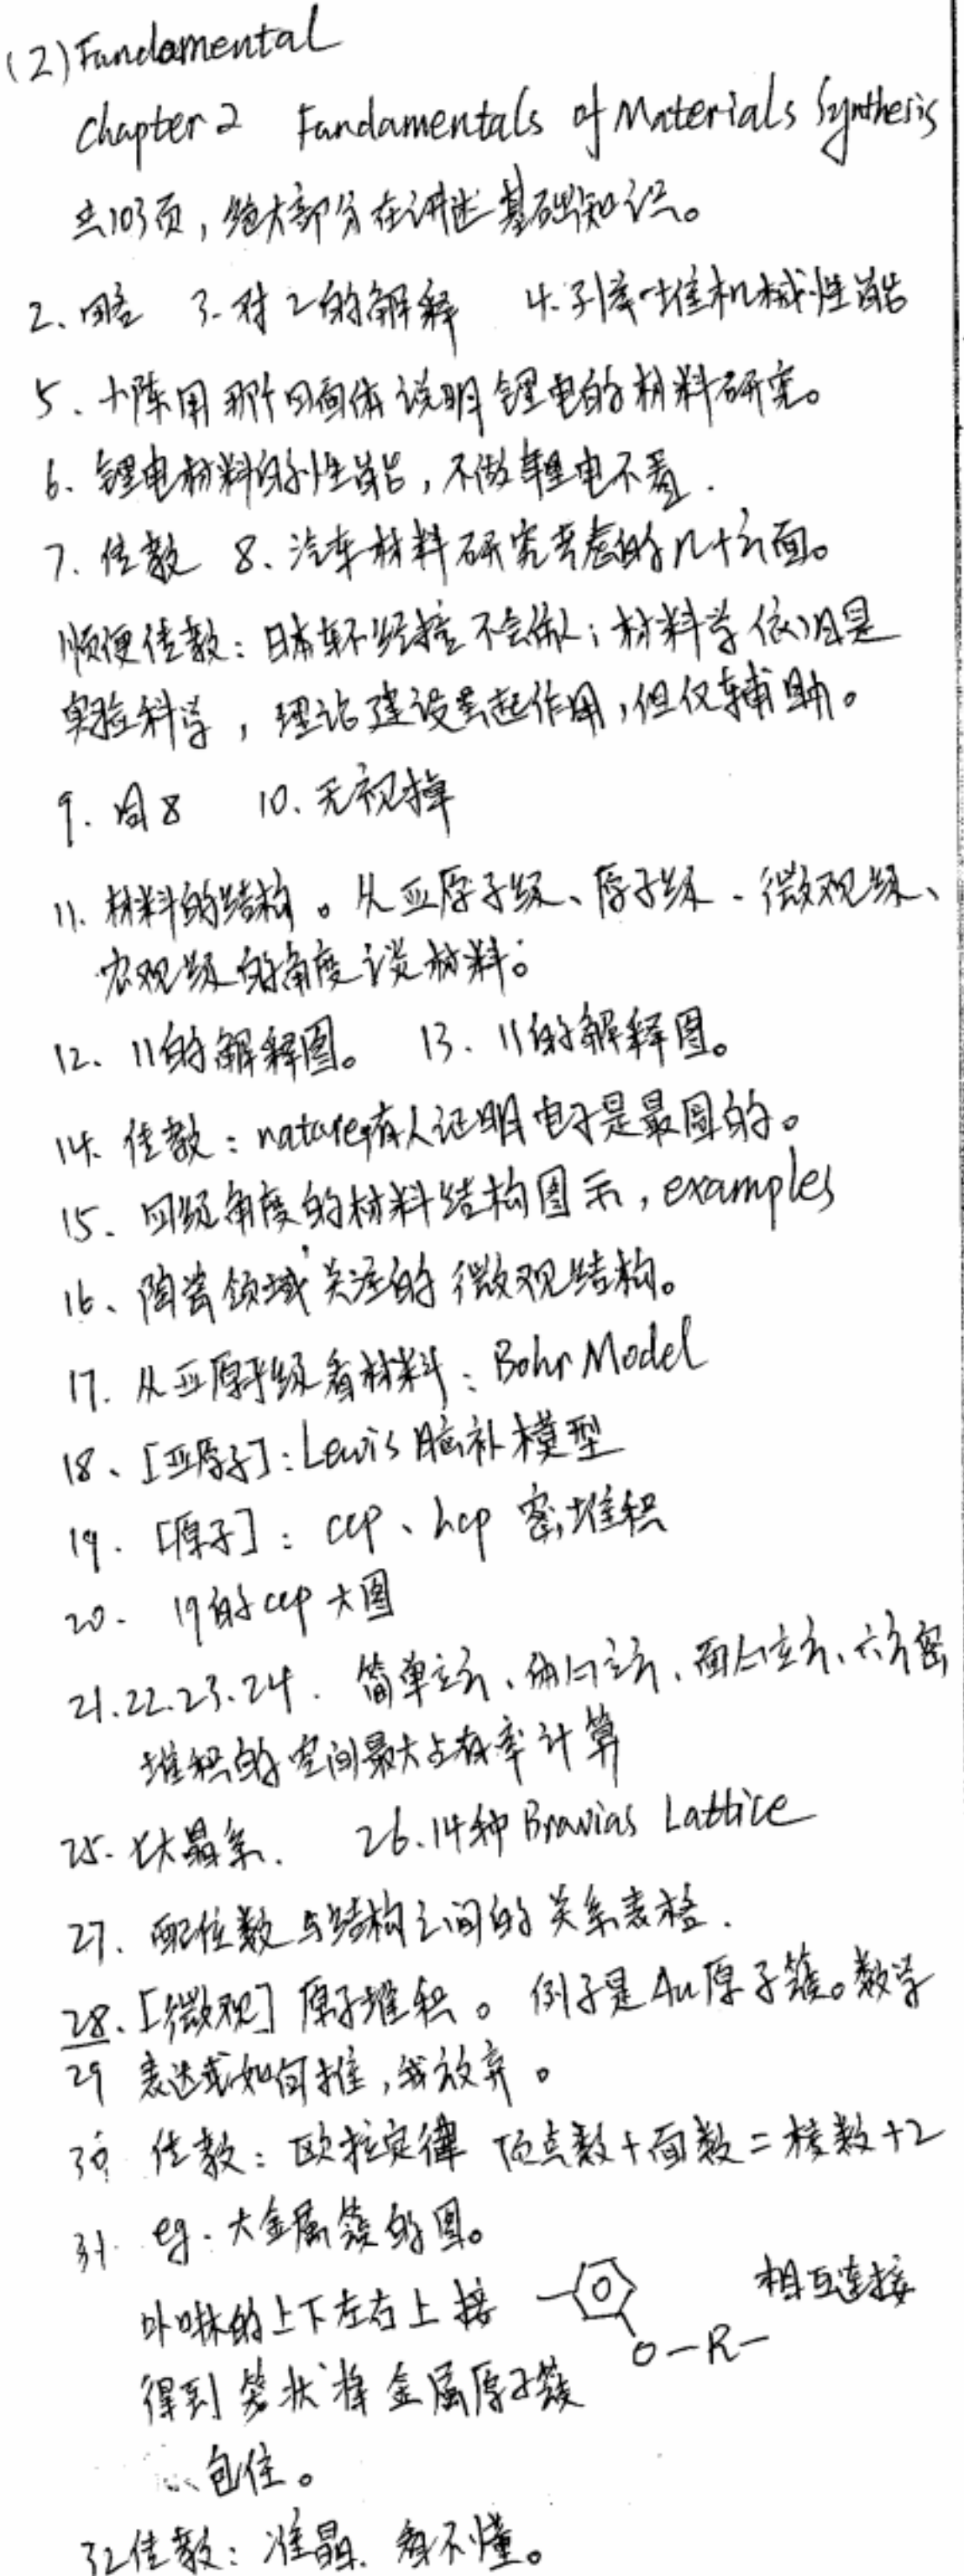 (2) Fundamental
Chapter 2 Fundamentals of Materials Synthesis
共103页，绝大部分在讲述基础知识。
2、略 3. 对2的解释 4. 引库 堆机械性能
5、小陈用那个四面体说明锂电的材料研究。
6、锂电材料的性能，不做锂电不看.
7. 佳教 8、汽车材料研究考虑的几十方面。
顺便佳教：日本轿 不会做人；材料学依旧是
实验科学，理论建设虽起作用，但仅辅助。
9. 同8 10. 无视掉
11. 材料的结构。从亚原子级、原子级、微观级、
宏观级的角度谈材料。
12、11的解释图。 13、11的解释图。
14. 佳教：nature有人证明电子是最圆的。
15、四级角度的材料结构图示，examples
16、陶瓷领域关注的微观结构。
17. 从亚原子级看材料：Bohr Model
18、[亚原子]：Lewis 脑补模型
19. [原子]：ccp、hcp 密堆积
20. 19的ccp大图
21.22.23.24. 简单立方、体心立方、面心立方、六方密
堆积的空间最大占有率计算
25. 七大晶系. 26. 14种 Bravias Lattice
27. 配位数与结构之间的关系表格.
28、[微观] 原子堆积。例子是Au原子簇。数学
29 表达式如何推，我放弃。
30 佳教：欧拉定律 顶点数+面数=棱数+2
31. eg. 大金属簇的图。
卟啉的上下左右上接 O-R- 相互连接
得到笼状将金属原子簇
包住。
32 佳教：准晶. 看不懂。